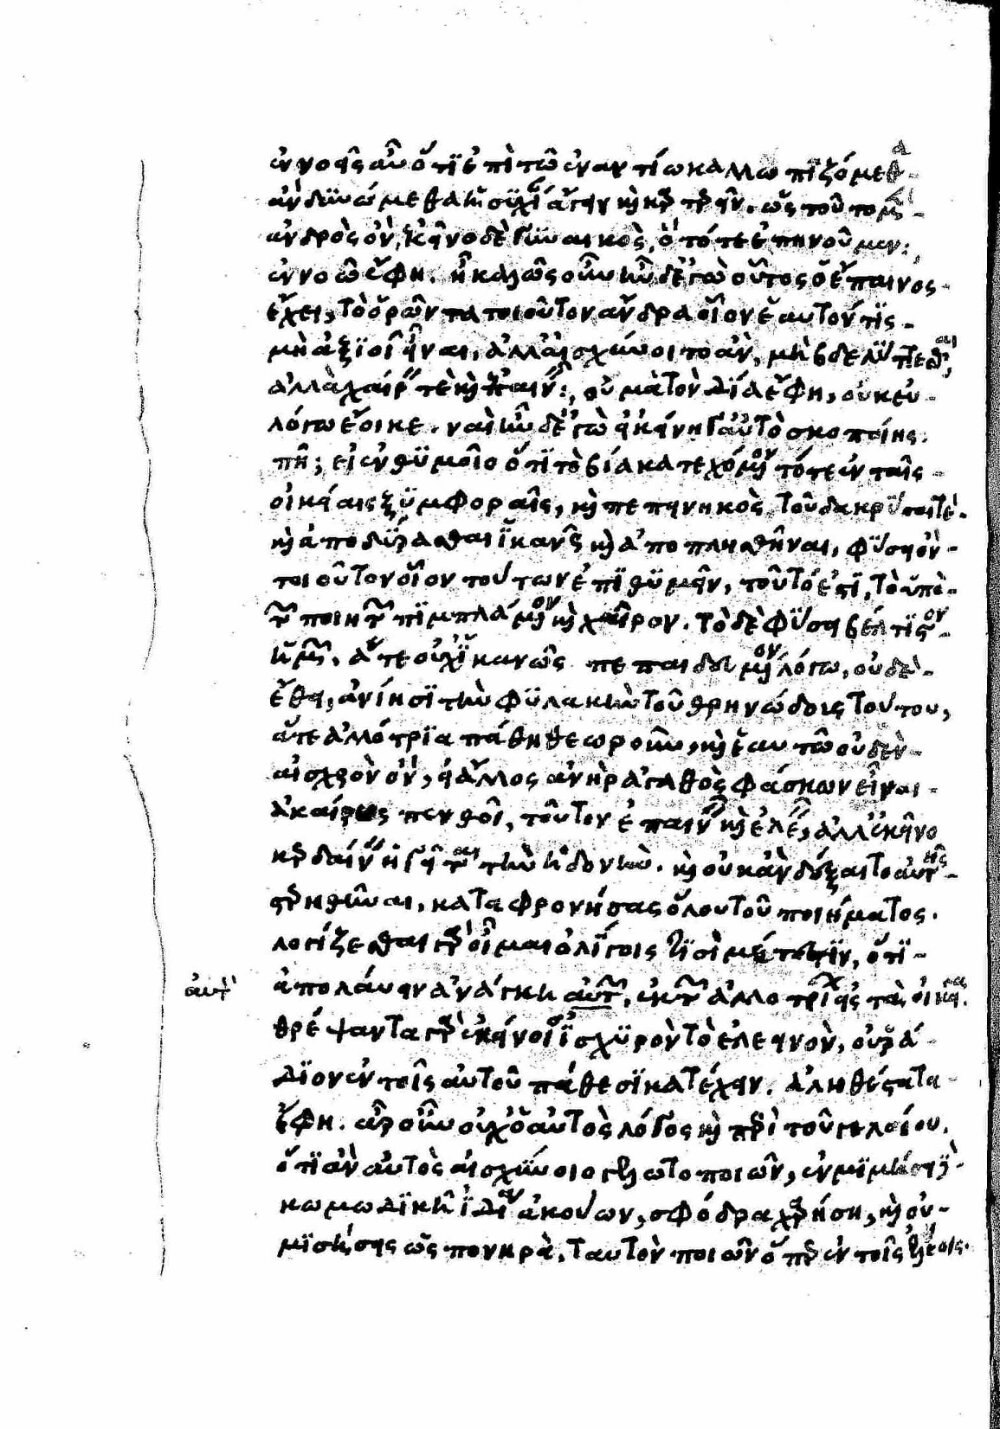 ἐννοεῖς αὖ ὅτι ἐπὶ τῷ ἐναντίῳ καλλωπιζόμεθα
ἂν δυνώμεθα ἡσυχίαν ἄγειν καὶ καρτερεῖν. ὡς τοῦτο μὲν
ἀνδρὸς ὄν, ἐκεῖνο δὲ γυναικός, ὃ τότε ἐπῃνοῦμεν.
ἐννοῶ ἔφη. ἦ καλῶς οὖν ἦν δ' ἐγὼ οὗτος ὁ ἔπαινος
ἔχει, τὸ ὁρῶντα τοιοῦτον ἄνδρα οἷον ἑαυτόν τις
μὴ ἀξιοῖ εἶναι, ἀλλ' αἰσχύνοιτο ἄν, μὴ βδελύττεσθαι,
ἀλλὰ χαίρειν τε καὶ ἐπαινεῖν; οὐ μὰ τὸν Δία ἔφη, οὐκ εὐ
λόγῳ ἔοικε. ναὶ ἦν δ' ἐγὼ εἰ ἐκείνῃ γ' αὐτὸ σκοποίης.
πῇ; εἰ ἐνθυμοῖο ὅτι τὸ βίᾳ κατεχόμενον τότε ἐν ταῖς
οἰκείαις ξυμφοραῖς, καὶ πεπεινηκὸς τοῦ δακρῦσαί τε
καὶ ἀποδύρασθαι ἱκανῶς καὶ ἀποπλησθῆναι, φύσει ὂν
τοιοῦτον οἷον τούτων ἐπιθυμεῖν, τοῦτό ἐστι, τὸ ὑπὸ
τῶν ποιητῶν πιμπλάμενον καὶ χαῖρον. τὸ δὲ φύσει βέλτιστον
ἡμῶν, ἅτε οὐχ ἱκανῶς πεπαιδευμένον λόγῳ, οὐδὲ
ἔθει, ἀνίησι τὴν φυλακὴν τοῦ θρηνώδους τούτου,
ἅτε ἀλλότρια πάθη θεωροῦν, καὶ ἑαυτῷ οὐδὲν
αἰσχρὸν ὄν, εἰ ἄλλος ἀνὴρ ἀγαθὸς φάσκων εἶναι
ἀκαίρως πενθοῖ, τοῦτον ἐπαινεῖν καὶ ἐλεεῖν, ἀλλ' ἐκεῖνο
κερδαίνειν ἡγεῖται τὴν ἡδονήν. καὶ οὐκ ἂν δέξαιτο αὐτῆς
στερηθῆναι, καταφρονήσας ὅλου τοῦ ποιήματος.
λογίζεσθαι γὰρ οἶμαι ὀλίγοις τισὶ μέτεστιν, ὅτι
ἀπολαύειν ἀνάγκη αὐτῶν, ἐκ τῶν ἀλλοτρίων εἰς τὰ οἰκεῖα.
αὐτ
θρέψαντα γὰρ ἐν ἐκείνοις ἰσχυρὸν τὸ ἐλεεινόν, οὐ ῥᾴ
διον ἐν τοῖς αὑτοῦ πάθεσι κατέχειν. ἀληθέστατα
ἔφη. ἆρ' οὖν οὐχ ὁ αὐτὸς λόγος καὶ περὶ τοῦ γελοίου.
ὅτι ἂν αὐτὸς αἰσχύνοιο γελωτοποιῶν, ἐν μιμήσει
κωμωδικῇ ἰδίᾳ ἀκούων, σφόδρα χαρήσῃ, καὶ οὐ
μισήσῃς ὡς πονηρά, ταυτὸν ποιῶν ὅπερ ἐν τοῖς ἐλέοις.